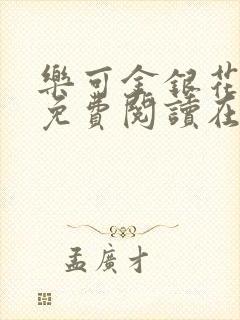 樂可金銀花
免費閱讀在
孟廣才